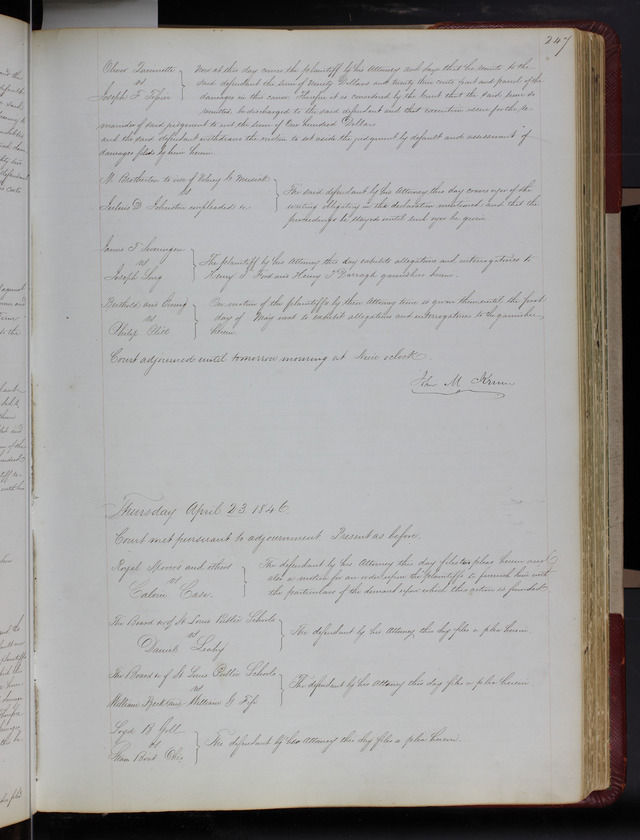 247
Oliver
vs
Joseph F.
Now at this day comes the plaintiff by his Attorney and says that he remits to the
said defendant the sum of twenty Dollars and ninety three cents part and parcel of the
damages in this cause. Therefore it is considered by the Court that the said sum so
remitted be discharged to the said defendant and that execution issue for the re-
mainder of said judgement to wit the sum of two hundred Dollars
and the said defendant withdraws the motion to set aside the judgment by default and assessment of
damages filed by him herein.
M. Brotherton to use of
vs
D. Johnston impleaded &c
The said defendant by his Attorney this day craves oyer of the
writing obligatory in the declaration mentioned and that the
proceedings be stayed until such oyer be given
James T. Swearingen
vs
Joseph Long
The plaintiff by his Attorney this day exhibits allegations and interrogatories to
Henry S. and Henry T. Darragh garnishees herein.
Berthold and Ewing
vs
Philip
On motion of the plaintiffs by their Attorney time is given them until the first
day of May next to exhibit allegations and interrogatories to the garnishee
herein
Court adjourned until tomorrow morning at Nine oclock.
Jno M Krum
Thursday April 23 1846
Court met pursuant to adjournment Present as before.
Royal and others
vs
Case.
The defendant by his Attorney this day files his pleas herein and
also a motion for an order upon the plaintiffs to furnish him with
the particulars of the demand upon which this action is founded
The Board &c of St Louis Public Schools
vs
Daniel Leahy
The defendant by his Attorney this day files a plea herein.
The Board &c of St Louis Public Schools
vs
William William G
The defendant by his Attorney this day files a plea herein.
B Gill
vs
Steam Boat Ohio
The defendant by his Attorney this day files a plea herein.